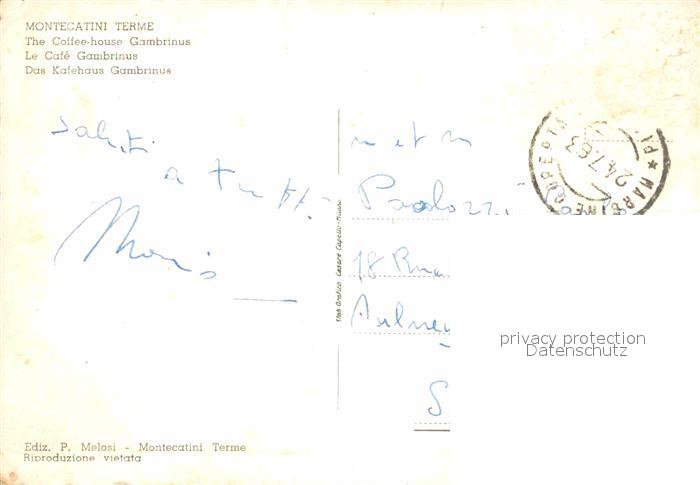 MONTECATINI TERME
The Coffee-house Gambrinus
Le Café Gambrinus
Das Kafehaus Gambrinus
Saluti
a tutti
m et m
Paolozzi
18 Rue
Aulney
S
24.7.63
MAR
COPERTO
Stab. Grafico Cesare Capello-Milano
privacy protection
Datenschutz
Ediz. P. Melosi - Montecatini Terme
Riproduzione vietata